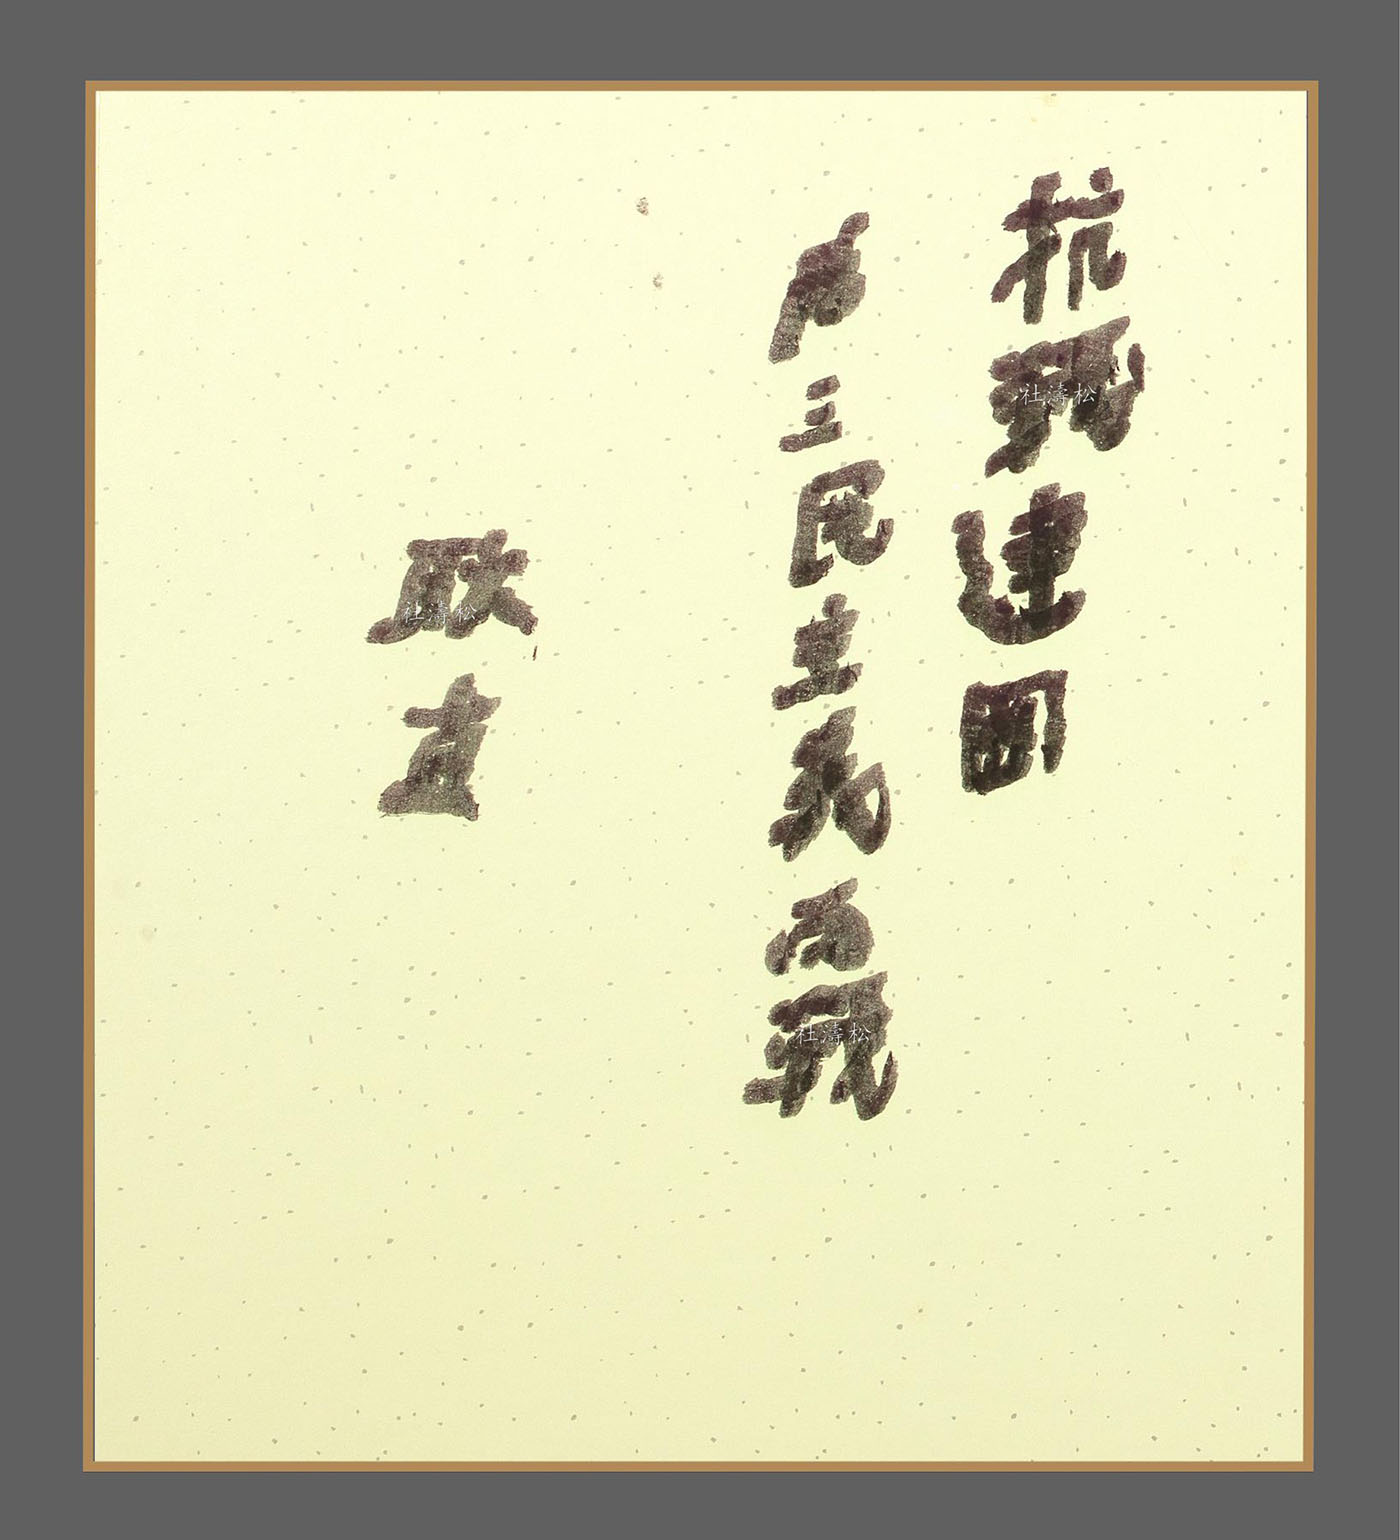 抗戰建國
為三民主義而戰
耿直
社濤松
社濤松
社濤松